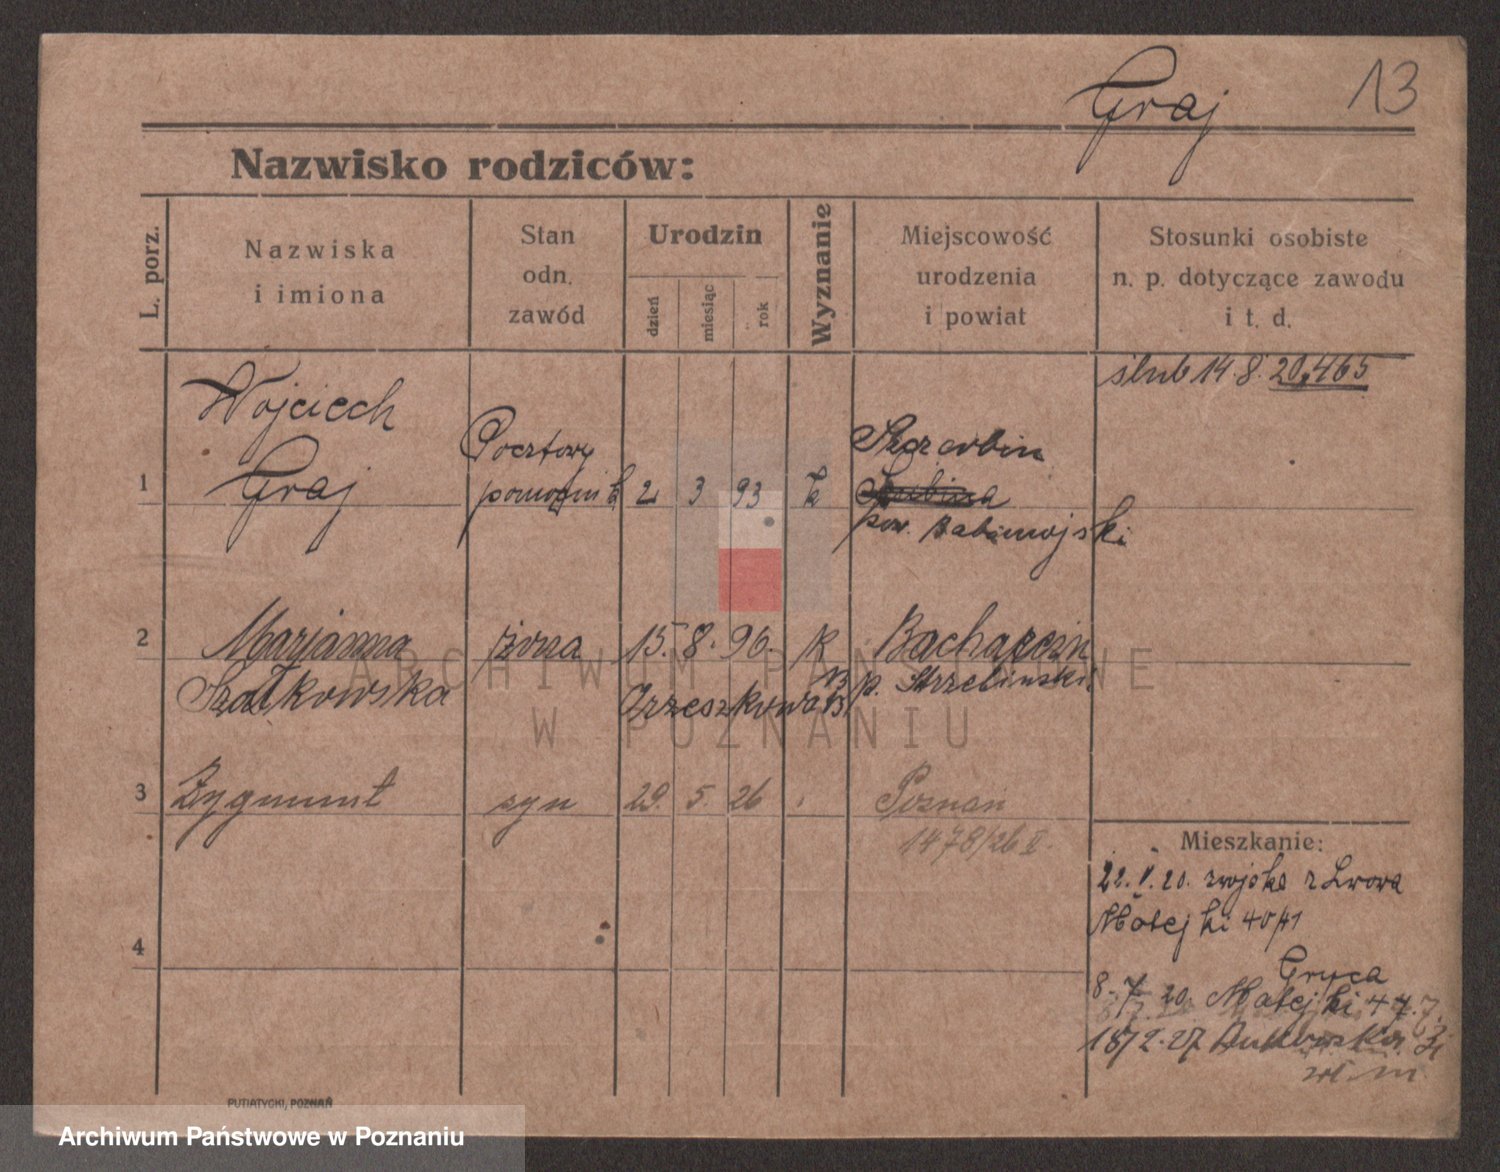 Graj 13
Nazwisko rodziców:
L. porz.
Nazwiska
i imiona
Stan
odn.
zawód
Urodzin
dzień
miesiąc
rok
Wyznanie
Miejscowość
urodzenia
i powiat
Stosunki osobiste
n. p. dotyczące zawodu
i t. d.
ślub 14.8.20.465
1
Wojciech
Graj
Pocztowy
pomocnik
2 3 93 k
Szczerbin
pow. Babimojski
2
Marjanna
Szatkowska
żona
15. 8. 96. k
Orzeszkowa 13
Bacharcin
p. Strzeliński
3
Zygmunt
syn
29. 5. 26
Poznań
1478/26 II.
4
Mieszkanie:
22. V. 20. z wojska z Lwowa
Matejki 40/41
Gruca
8. 7. 20. Matejki 44.
18/2.27
PUTIATYCKI, POZNAŃ
ARCHIWUM PAŃSTWOWE
W POZNANIU
Archiwum Państwowe w Poznaniu